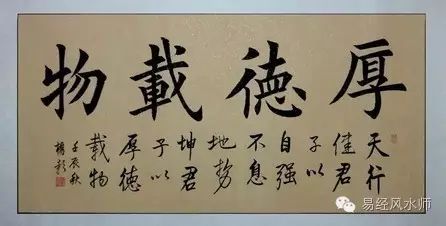 厚德載物
天行
健君
子以
自强
不息
地势
坤君
子以
厚德
載物
壬辰秋
易经风水师